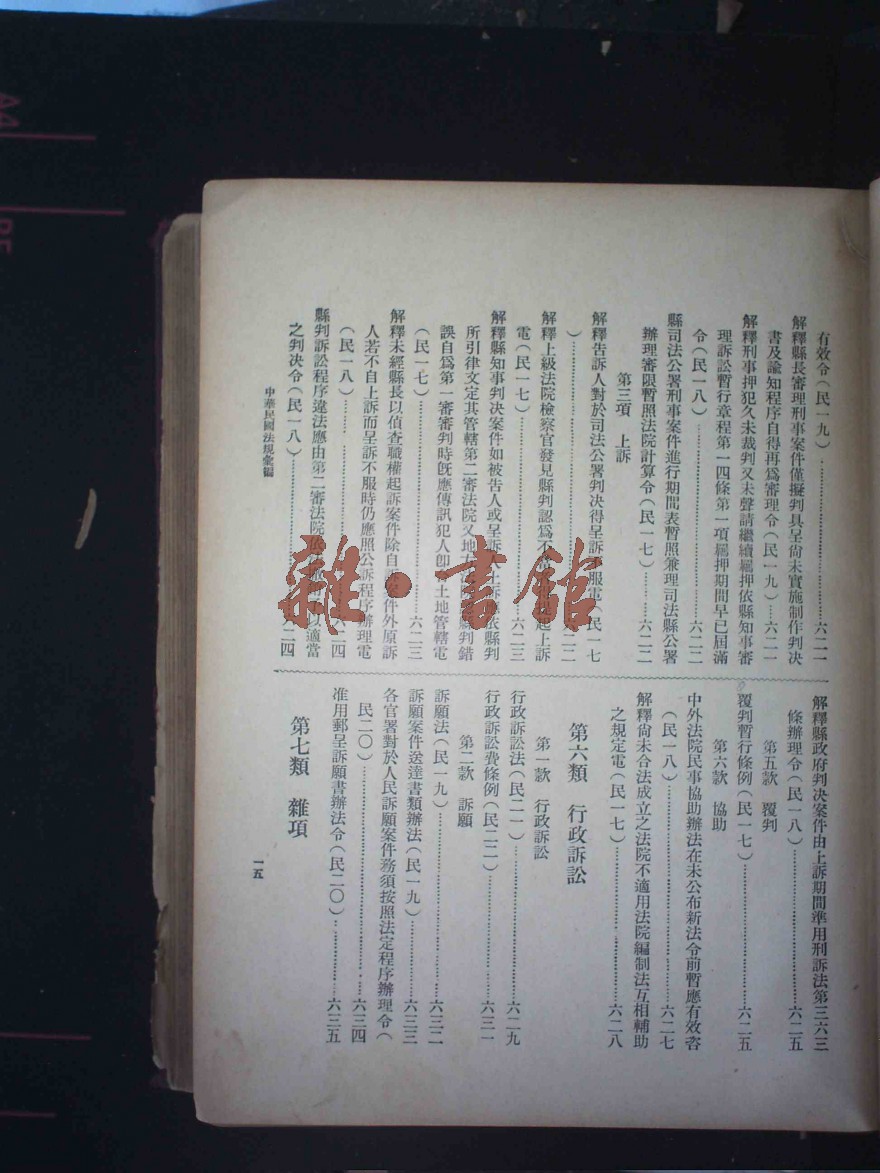 有效令(民一九)⋯⋯六二一
解釋縣長審理刑事案件僅擬判具呈尙未實施制作判決
書及諭知程序自得再爲審理令(民一九)⋯⋯六二一
解釋刑事押犯久未裁判又未聲請繼續羈押依縣知事審
理訴訟暫行章程第一四條第一項羈押期間早已屆滿
令(民一八)⋯⋯六二二
縣司法公署刑事案件進行期間表暫照兼理司法縣公署
辦理審限暫照法院計算令(民一七)⋯⋯六二二
第三項 上訴
解釋告訴人對於司法公署判決得呈訴不服電(民一七
)⋯⋯六二二
解釋上級法院檢察官發見縣判認爲不 起上訴
電(民一七)⋯⋯六二三
解釋縣知事判決案件如被告人或呈訴人上訴 依縣判
所引律文定其管轄第二審法院又地 縣判錯
誤自爲第一審審判時旣應傳訊犯人卽 土地管轄電
(民一七)⋯⋯六二三
解釋未經縣長以偵查職權起訴案件除自訴案件外原訴
人若不自上訴而呈訴不服時仍應照公訴程序辦理電
(民一八)⋯⋯六二四
縣判訴訟程序違法應由第二審法院 以適當
之判決令(民一八)⋯⋯六二四
解釋縣政府判決案件由上訴期間準用刑訴法第三六三
條辦理令(民一八)⋯⋯六二五
第五款 覆判
覆判暫行條例(民一七)⋯⋯六二五
第六款 協助
中外法院民事協助辦法在未公布新法令前暫應有效咨
(民一八)⋯⋯六二七
解釋尙未合法成立之法院不適用法院編制法互相輔助
之規定電(民一七)⋯⋯六二八
第六類 行政訴訟
第一款 行政訴訟
行政訴訟法(民二一)⋯⋯六二九
行政訴訟費條例(民二二)⋯⋯六三一
第二款 訴願
訴願法(民一九)⋯⋯六三二
訴願案件送達書類辦法(民一九)⋯⋯六三三
各官署對於人民訴願案件務須按照法定程序辦理令(
民二〇)⋯⋯六三四
准用郵呈訴願書辦法令(民二〇)⋯⋯六三五
第七類 雜項
中華民國法規彙編
一五
雜·書館